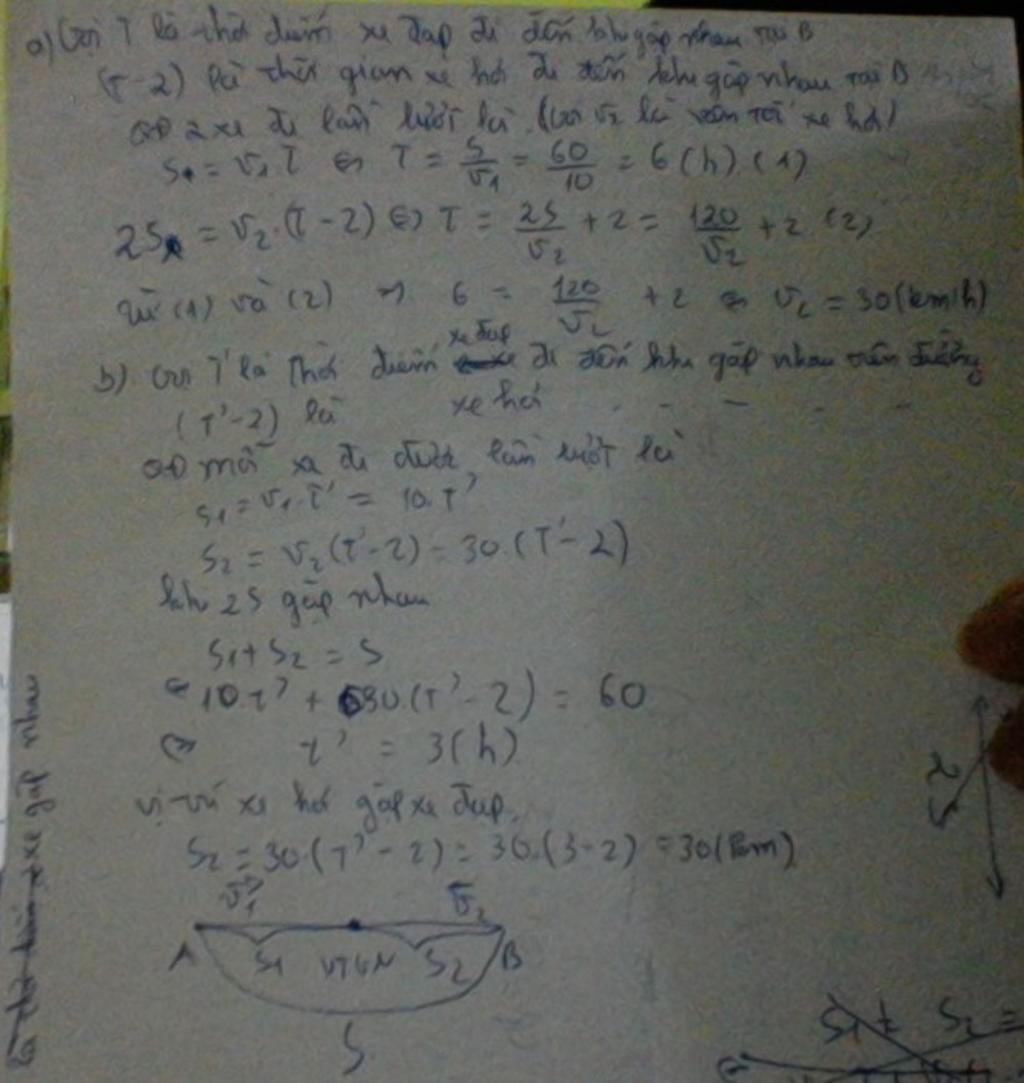 a) Gọi T là thời điểm xe đạp đi đến khi gặp nhau tại B
(T-2) là thời gian xe hơi đi đến khi gặp nhau tại B
QĐ 2 xe đi lần lượt là (Gọi v₂ là vân tốc xe hơi)
S₁ = v₁T ⇔ T = S/v₁ = 60/10 = 6 (h) (1)
2S = v₂.(T-2) ⇔ T = 2S/v₂ + 2 = 120/v₂ + 2 (2)
Từ (1) và (2) → 6 = 120/v₂ + 2 ⇔ v₂ = 30(km/h)
b) Gọi T' là thời điểm xe đạp đi đến khi gặp nhau trên đường
(T'-2) là xe hơi - - - - -
QĐ mỗi xe đi được lần lượt là
S₁ = v₁.T' = 10.T'
S₂ = v₂(T'-2) = 30.(T'-2)
khi 2S gặp nhau
S₁+S₂ = S
⇔ 10.T' + 30.(T'-2) = 60
⇔ T' = 3(h)
vị trí xe hơi gặp xe đạp.
S₂ = 30.(T'-2) = 30.(3-2) = 30(km)
v₁ v₂
A S₁ VTGN S₂ B
S
S₁ + S₂ =
xe gặp nhau